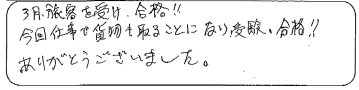 3月旅客を受け、合格!!
今回仕事で貨物も取ることになり受験、合格!!
ありがとうございました。